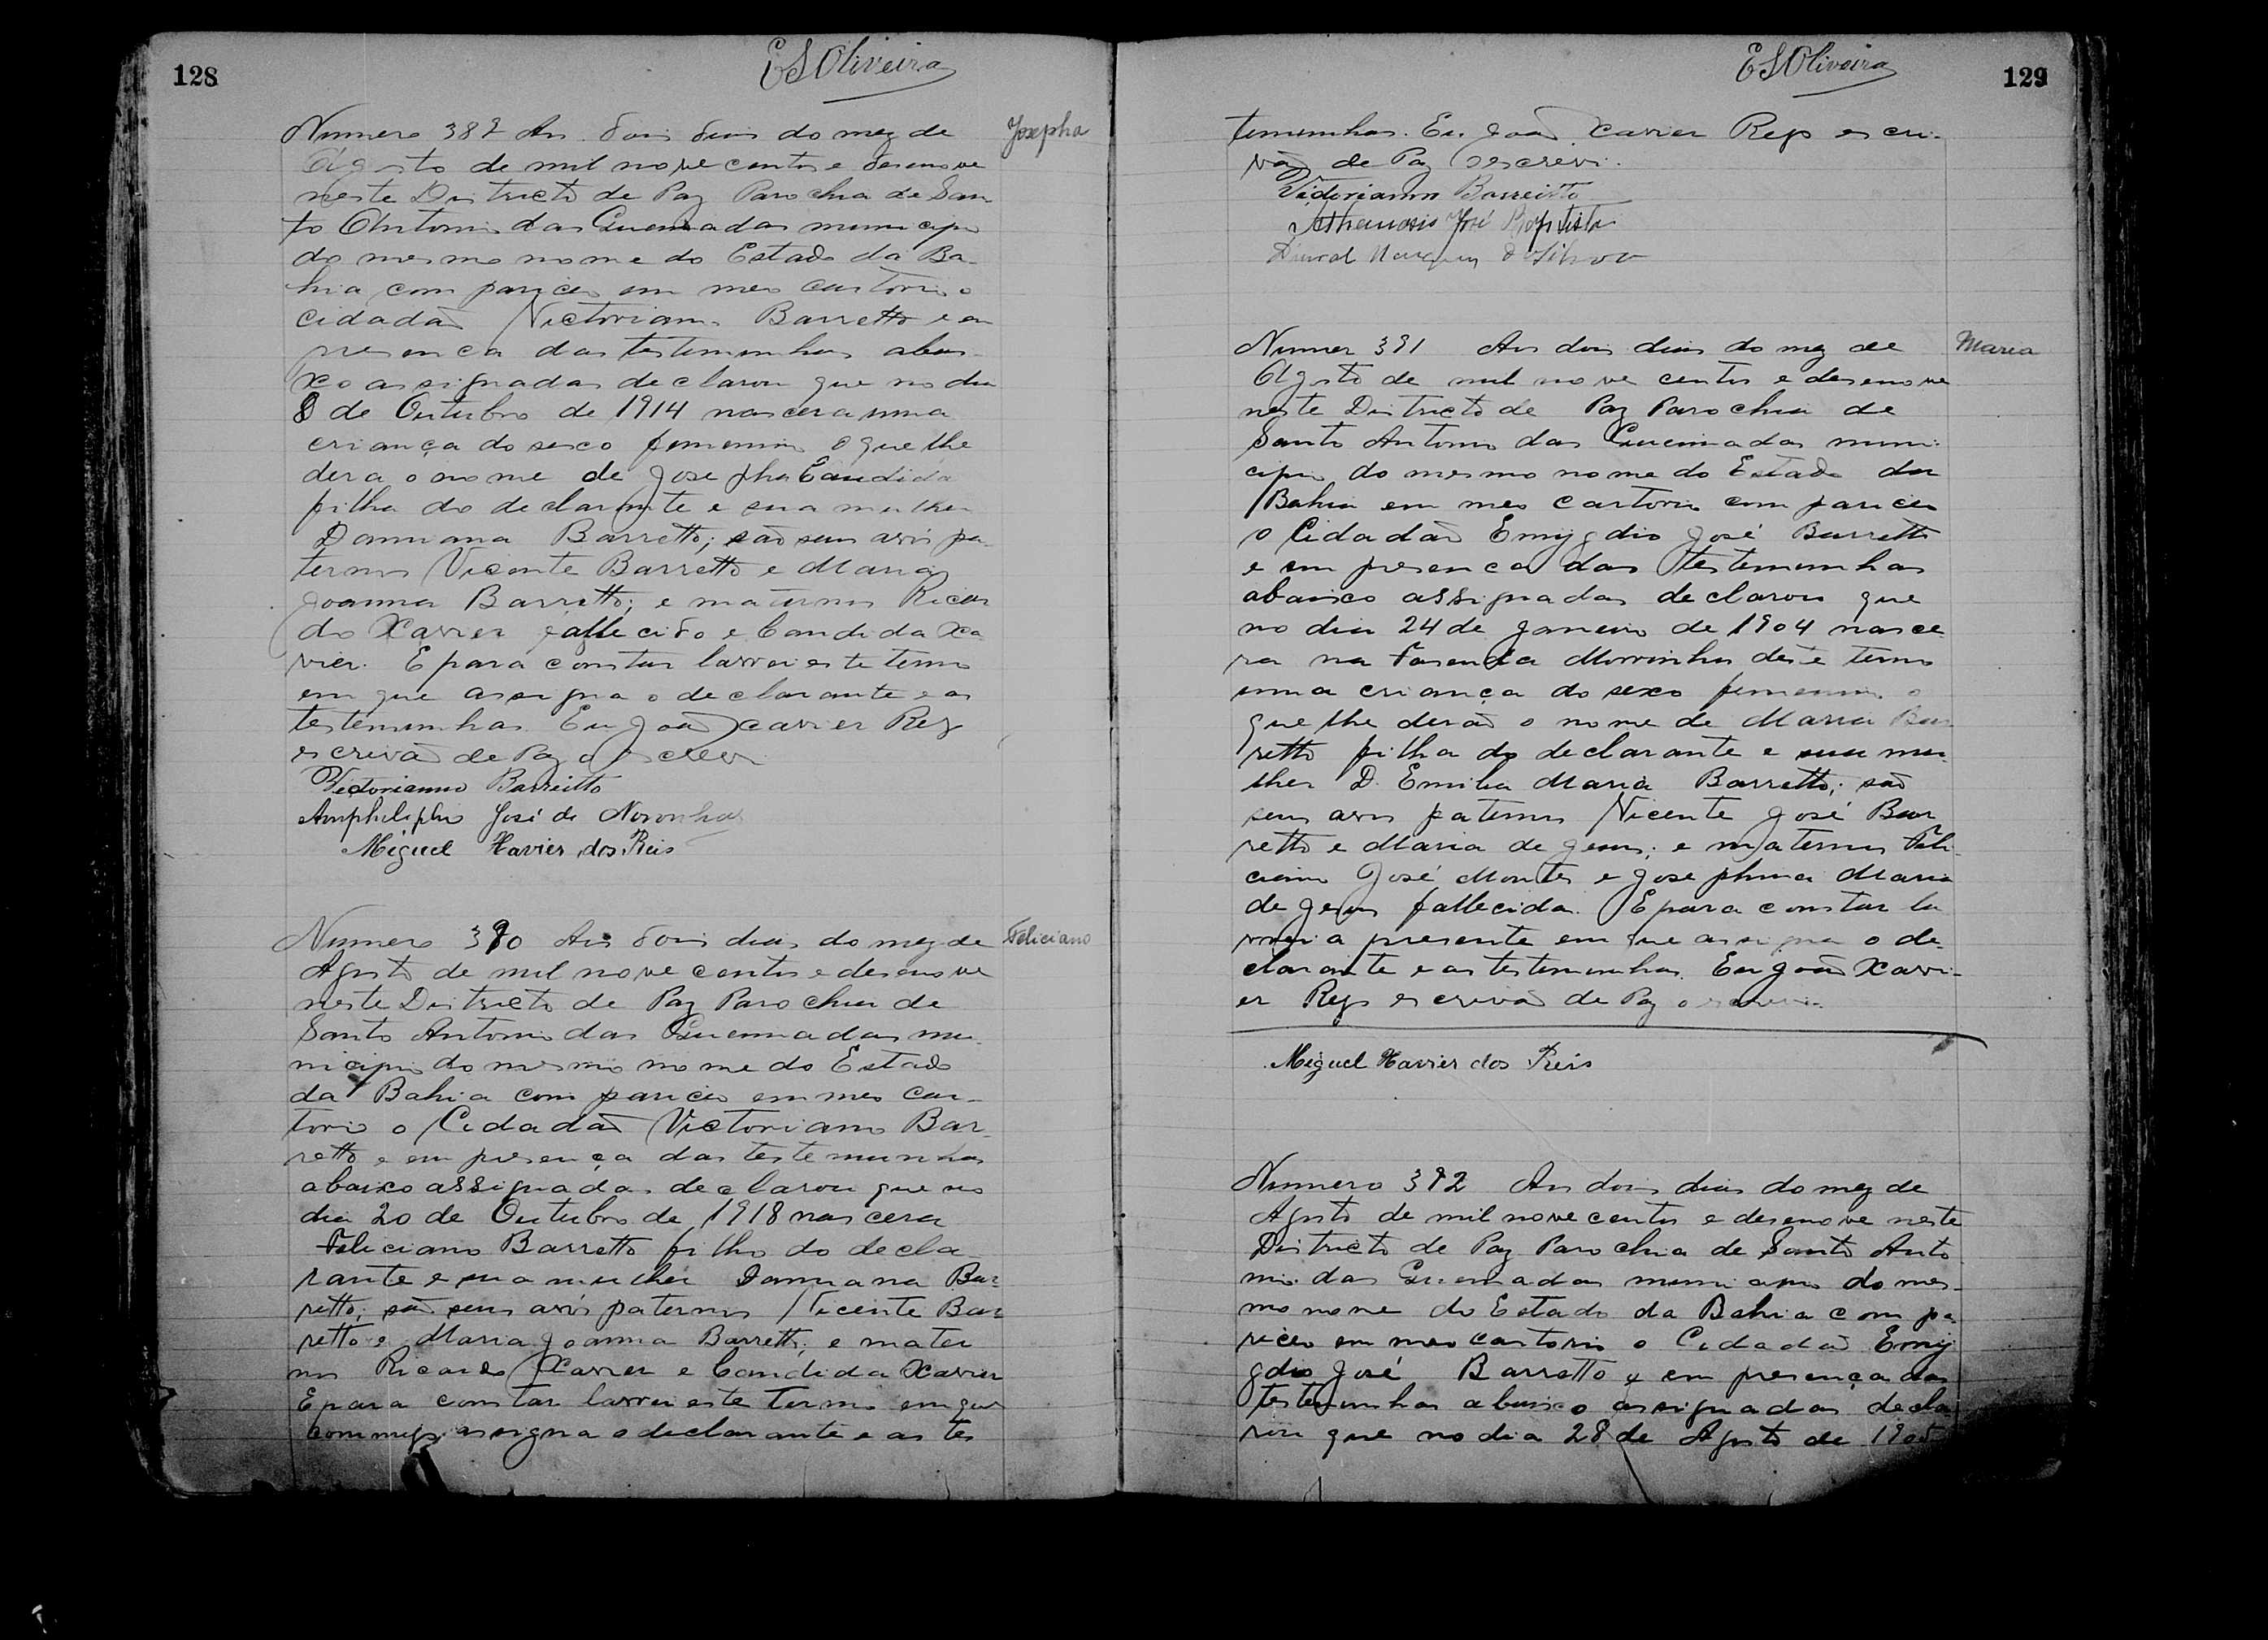 128
ESOliveira
Numero 389 Aos dois dias do mez de
Josepha
Agosto de mil nove centos e desenove
neste Districto de Paz Parochia de San
to Antonio das Queimadas municipio
do mesmo nome do Estado da Ba-
hia com pareceo em meo cartorio o
cidadão Victoriano Barretto e em
presença das testemunhas abai-
xo assignadas declarou que no dia
8 de Outubro de 1914 nascera uma
criança do sexo femenino o que lhe
dera o nome de Josepha Candida
filha do declarante e sua mulher
Damiana Barretto; são seus avós pa-
ternos Vicente Barretto e Maria
Joanna Barretto; e maternos Ricar
do Xavier fallecido e Candida Xa
vier. E para constar lavrei este termo
em que assigna o declarante e as
testemunhas. Eu João Xavier Reys
escrivão de Paz o escrevi
Victorianno Barreitto
Amphilophio José de Noronha
Miguel Xavier dos Reis
Numero 390 Aos dois dias do mez de
Feliciano
Agosto de mil nove centos e desenove
neste Districto de Paz Parochia de
Santo Antonio das Queimadas mu-
nicipio do mesmo nome do Estado
da Bahia com pareceo em meo car-
torio o Cidadão Victoriano Bar-
retto e em presença das testemunhas
abaixo assignadas declarou que no
dia 20 de Outubro de 1918 nascera
Feliciano Barretto filho do decla-
rante e sua mulher Damiana Bar-
retto; são seus avós paternos Vicente Bar-
retto e Maria Joanna Barretto; e mater
nos Ricardo Xavier e Candida Xavier
E para constar lavrei este termo em que
commigo assigna o declarante e as tes
ESOliveira
129
temunhas. Eu João Xavier Reys escri-
vão de Paz o escrevi.
Victorianno Barreitto
Athanasio José Baptista
Durval Marques da Silva
Numer 391 Aos dois dias do mez de
Maria
Agosto de mil nove centos e desenove
neste Districto de Paz Parochia de
Santo Antonio das Queimadas muni-
cipio do mesmo nome do Estado da
Bahia em meo cartorio com pareceo
o Cidadão Emygdio José Barretto
e em presença das testemunhas
abaixo assignadas declarou que
no dia 24 de Janeiro de 1904 nasce-
ra na Fasenda Morrinhos deste termo
uma criança do sexo femenino o
que lhe derão o nome de Maria Bar
retto filha do declarante e sua mu-
lher D. Emilia Maria Barretto; são
seus avos paternos Vicente José Bar
retto e Maria de Jesus; e maternos Feli-
ciano José Montes e Josephina Maria
de Jesus fallecida. E para constar la
vrei a presente em que assigna o de-
clarante e as testemunhas. Eu João Xavi-
er Reys escrivão de Paz o escrevi.
Miguel Xavier dos Reis
Numero 392 Aos dois dias do mez de
Agosto de mil nove centos e desenove neste
Districto de Paz Parochia de Santo Anto
nio das Queimadas municipio do mes-
mo nome do Estado da Bahia com pa
receo em meo cartorio o Cidadão Emy
gdio José Barretto e em presença das
testemunhas abaixo assignadas decla
rou que no dia 28 de Agosto de 1905